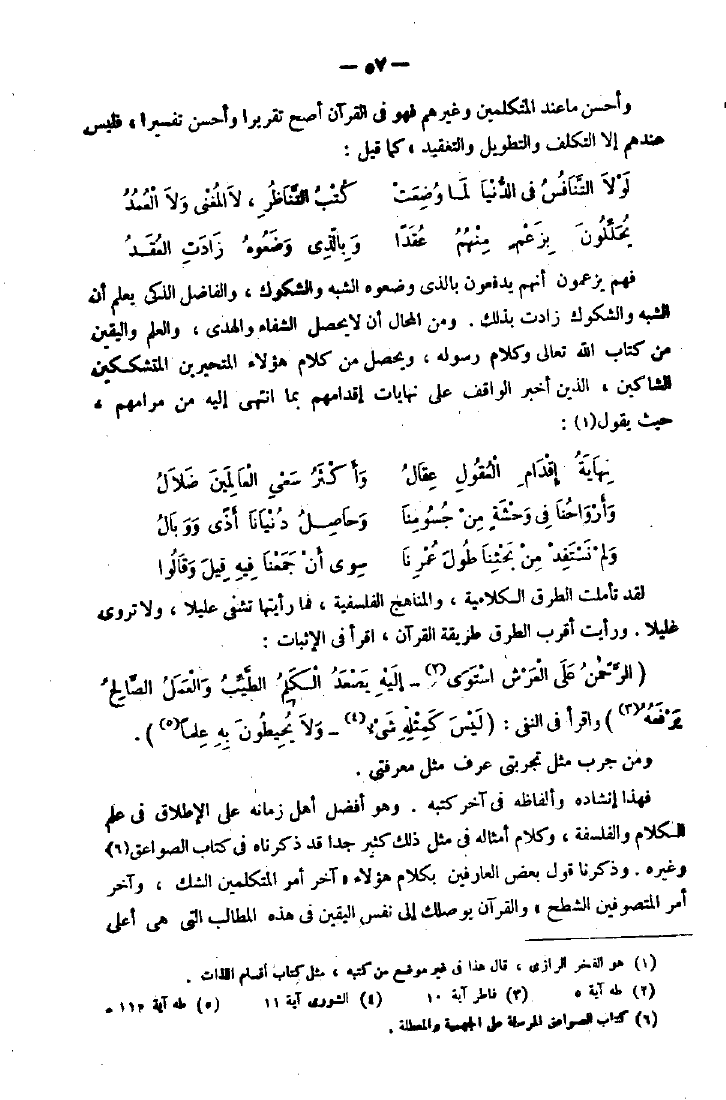 — ٥٧ —
وأحسن ماعند المتكلمين وغيرهم فهو فى القرآن أصح تقريرا وأحسن تفسيرا ، فليس
عندهم إلا التكلف والتطويل والتعقيد ، كما قيل :
لَوْلاَ التَّنَافُسُ فى الدُّنْيَا لَمَا وُضِعَتْ كُتْبُ التَّنَاظُرِ ، لاَ المُغْنى وَلاَ الْعُمَدُ
يُحَلِّلُونَ بِزَعْمٍ مِنْهُمُ عُقَدًا وَبِالَّذِى وَضَعُوهُ زَادَتِ العُقَدُ
فهم يزعمون أنهم يدفعون بالذى وضعوه الشبه والشكوك ، والفاضل الذكى يعلم أن
الشبه والشكوك زادت بذلك . ومن المحال أن لايحصل الشفاء والهدى ، والعلم واليقين
من كتاب الله تعالى وكلام رسوله ، ويحصل من كلام هؤلاء المتحيرين المتشككين
الشاكين ، الذين أخبر الواقف على نهايات إقدامهم بما انتهى إليه من مرامهم ،
حيث يقول(١) :
نِهَايَةُ إِقْدَامِ الْعُقُولِ عِقَالُ وَأَكْثَرُ سَعْىِ الْعَالَمِينَ ضَلاَلُ
وَأَرْوَاحُنَا فِى وَحْشَةٍ مِنْ جُسُومِنَا وَحَاصِلُ دُنْيَانَا أَذًى وَوَبَالُ
وَلَمْ نَسْتَفِدْ مِنْ بَحْثِنَا طُولَ عُمْرِنَا سِوى أَنْ جَمَعْنَا فِيهِ قِيلَ وَقَالُوا
لقد تأملت الطرق الكلامية ، والمناهج الفلسفية ، فما رأيتها تشفى عليلا ، ولا تروى
غليلا . ورأيت أقرب الطرق طريقة القرآن ، اقرأ فى الإثبات :
( الرَّحْمٰنُ عَلَى الْعَرْشِ اسْتَوَى(٢) ــ إِلَيْهِ يَصْعَدُ الْكَلِمُ الطَّيِّبُ وَالْعَمَلُ الصَّالِحُ
يَرْفَعُهُ(٣) ) واقرأ فى النفى : ( لَيْسَ كَمِثْلِهِ شَىْءٌ(٤) ــ وَلاَ يُحِيطُونَ بِهِ عِلْماً(٥) ) .
ومن جرب مثل تجربتى عرف مثل معرفتى .
فهذا إنشاده وألفاظه فى آخر كتبه . وهو أفضل أهل زمانه على الإطلاق فى علم
الكلام والفلسفة ، وكلام أمثاله فى مثل ذلك كثير جدا قد ذكرناه فى كتاب الصواعق(٦)
وغيره . وذكرنا قول بعض العارفين بكلام هؤلاء « آخر أمر المتكلمين الشك ، وآخر
أمر المتصوفين الشطح » والقرآن يوصلك إلى نفس اليقين فى هذه المطالب التى هى أعلى
(١) هو الفخر الرازى ، قال هذا فى غير موضع من كتبه ، مثل كتاب أقسام اللذات .
(٢) طه آية ٥ (٣) فاطر آية ١٠ (٤) الشورى آية ١١ (٥) طه آية ١١٠ .
(٦) كتاب الصواعق المرسلة على الجهمية والمعطلة .